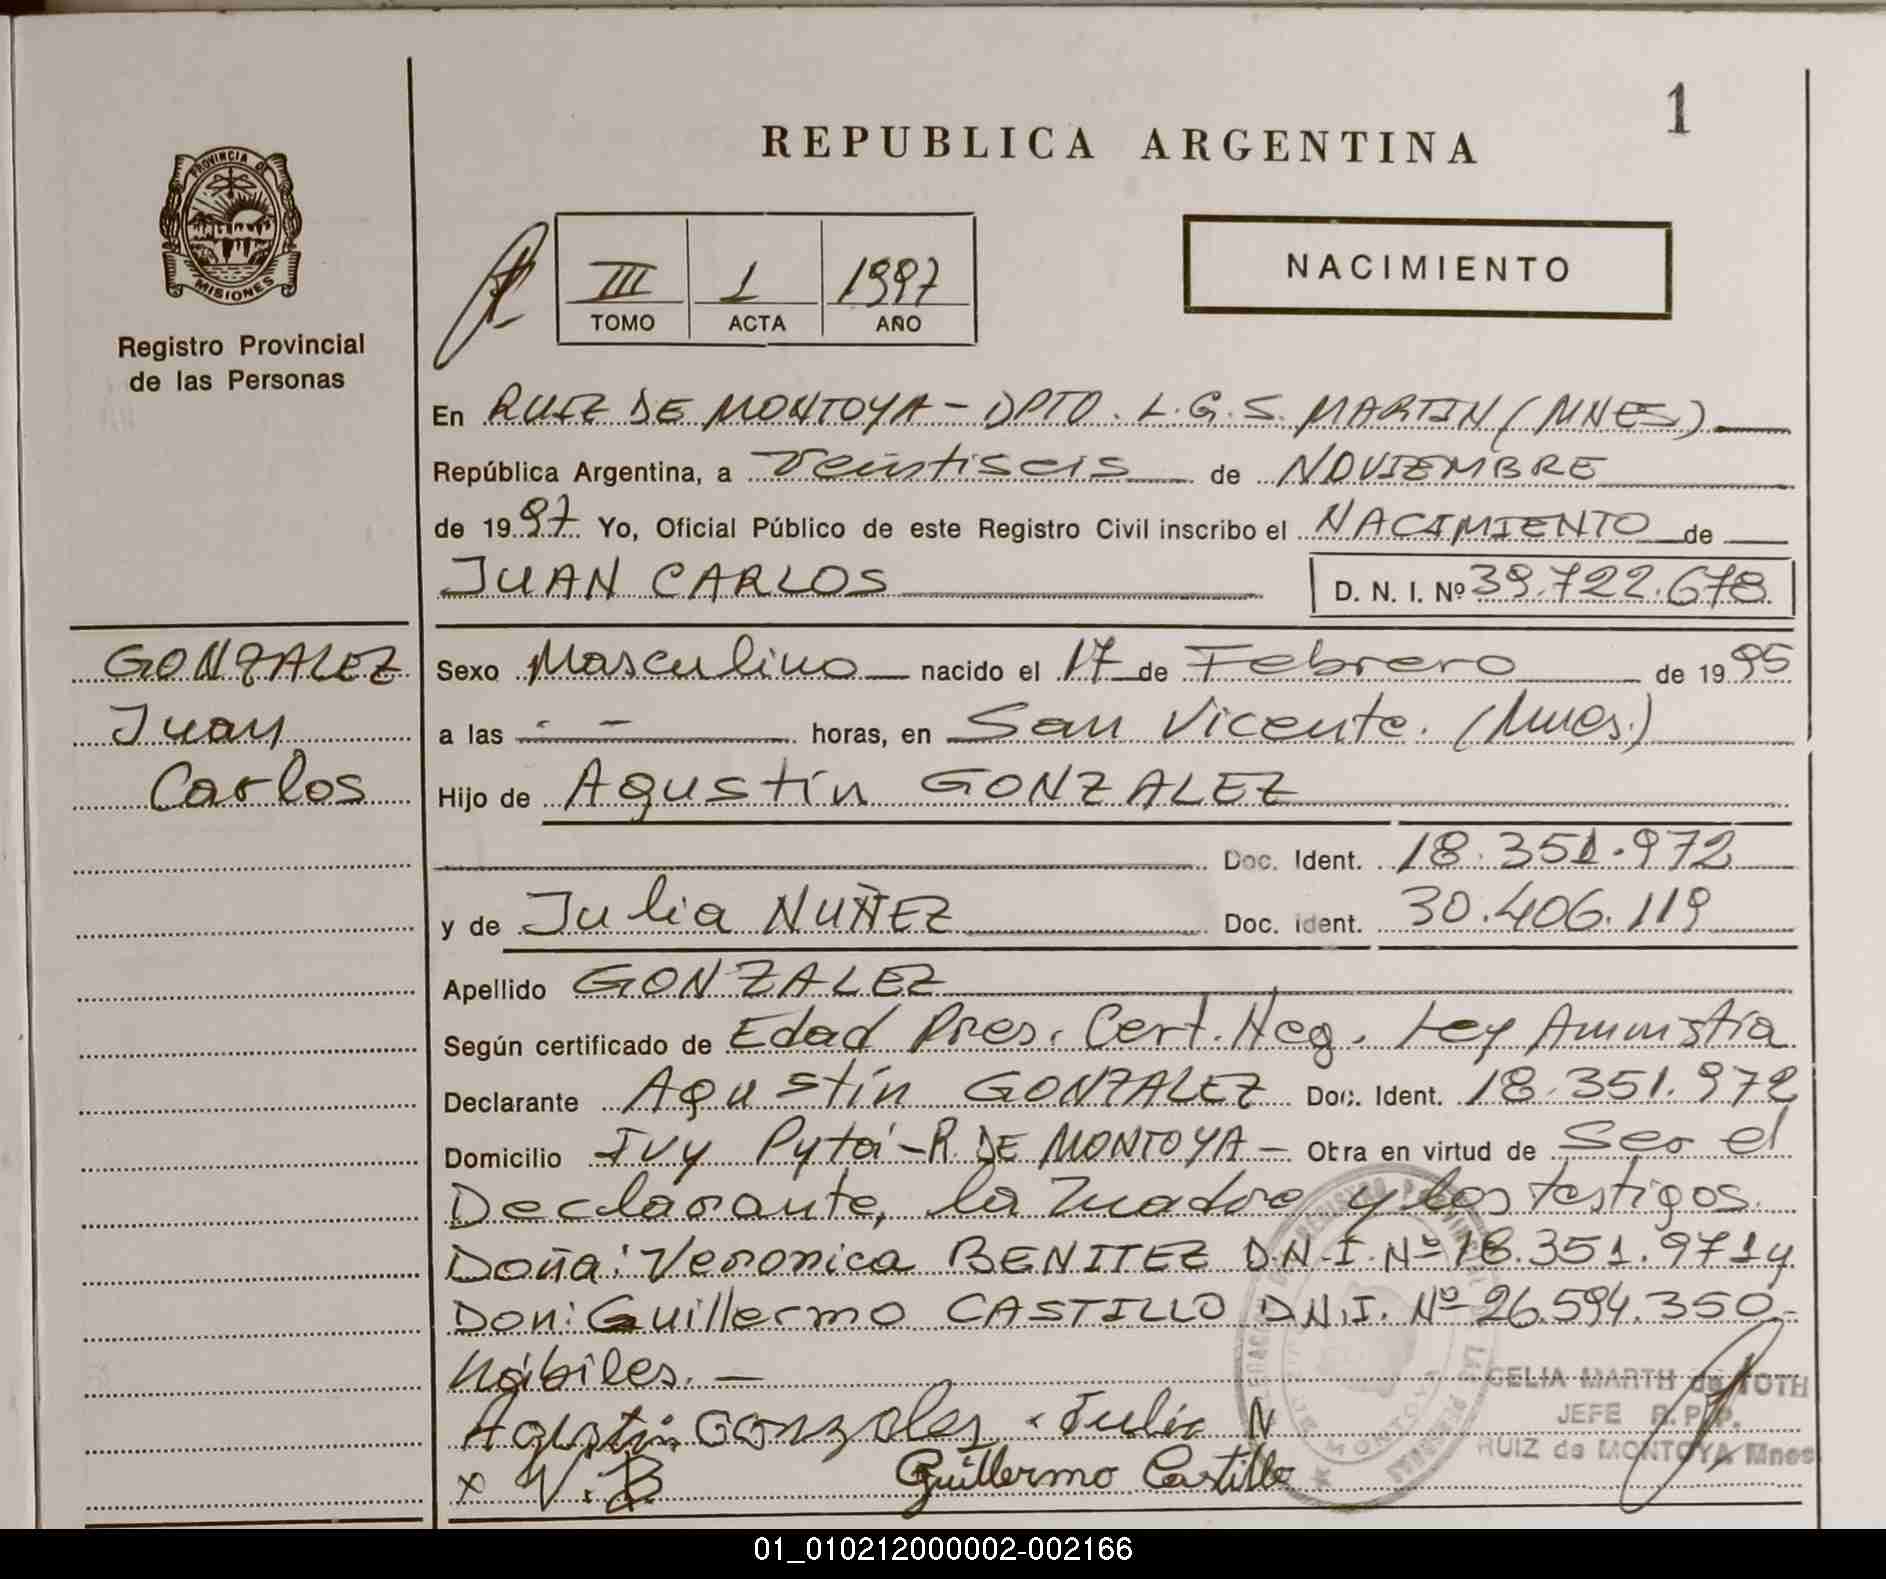 1
REPUBLICA ARGENTINA
PROVINCIA DE
MISIONES
Registro Provincial
de las Personas
III 1 1997
TOMO ACTA AÑO
NACIMIENTO
En RUIZ DE MONTOYA - DPTO. L.G.S. MARTIN (MNES)
República Argentina, a Veintiseis de NOVIEMBRE
de 1997 Yo, Oficial Público de este Registro Civil inscribo el NACIMIENTO de
JUAN CARLOS D. N. I. Nº 39.722.678
GONZALEZ
Juan
Carlos
Sexo Masculino nacido el 17 de Febrero de 1995
a las - - horas, en San Vicente. (Mnes.)
Hijo de Agustín GONZALEZ
Doc. Ident. 18.351.972
y de Julia NUÑEZ Doc. ident. 30.406.119
Apellido GONZALEZ
Según certificado de Edad Pres. Cert. Neg. Ley Amnistia
Declarante Agustín GONZALEZ Doc. Ident. 18.351.972
Domicilio Ivy Pytá - R. DE MONTOYA - Obra en virtud de Ser el
Declarante, la Madre y los testigos.
Doña: Veronica BENITEZ D.N.I. Nº 18.351.971 y
Don: Guillermo CASTILLO D.N.I. Nº 26.594.350.-
hábiles. —
Agustin Gonzales . Julia N
x V. B Guillermo Castillo
CELIA MARTH de TOTH
JEFE R.P.P.
RUIZ de MONTOYA Mnes
01_010212000002-002166